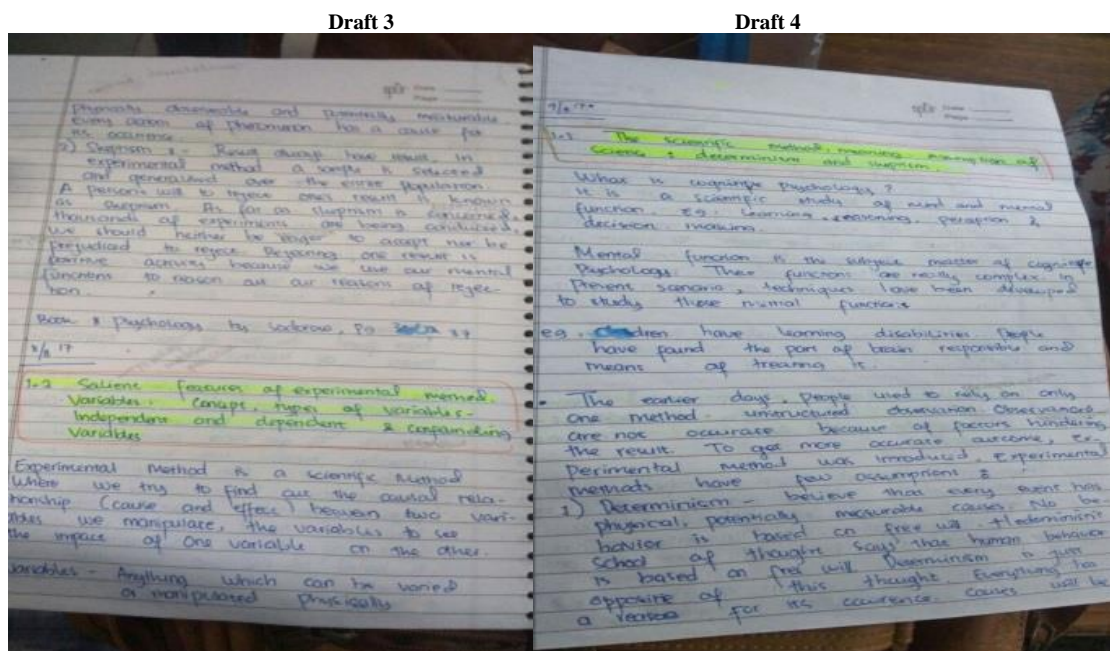 Draft 3
physically observable and potentially measurable
every action of phenomenon has a cause for
its occurence.
2) Skeptism :- Result always have result. In
experimental method a sample is selected
and generalised over the entire population.
A person's will to reject one's result is known
as skeptism. As far as skeptism is concerned,
thousands of experiments are being conducted,
we should neither be eager to accept nor be
prejudiced to reject. Rejecting one result is
positive activity because we use our mental
functions to reason out our reasons of rejec-
tion.
Book : Psychology by Pg 37
17
1.2 Salient Features of experimental method.
Variables - concept, types of variables -
Independent and dependent & confounding
Variables
Experimental Method is a scientific method
where we try to find out the causal rela-
tionship (cause and effect) between two vari-
ables we manipulate, the variables to see
the impact of one variable on the other.
Variables - Anything which can be varied
or manipulated physically
Draft 4
split
17
1.1 The scientific method, meaning assumption of
science : determinism and skeptism.
What is cognitive psychology?
It is a scientific study of mind and mental
function. eg: learning, reasoning, perception &
decision making.
Mental function is the subject matter of cognitive
Psychology. Their functions are really complex. In
present scenario, techniques have been developed
to study these mental functions
eg. Children have learning disabilities. People
have found the part of brain responsible and
means of treating it.
• The earlier days, people used to rely on only
one method - unstructured observation. Observations
are not occurate because of factors hindering
the result. To get more occurate outcome, Ex-
perimental method was introduced. Experimental
methods have few assumptions :
1) Determinism - believe that every event has
physical, potentially measurable causes. No be-
havior is based on free will.
school of thought says that human behavior
is based on free will Determinism is just
opposite of this thought. Everything has
a reason for its occurence. Causes will be